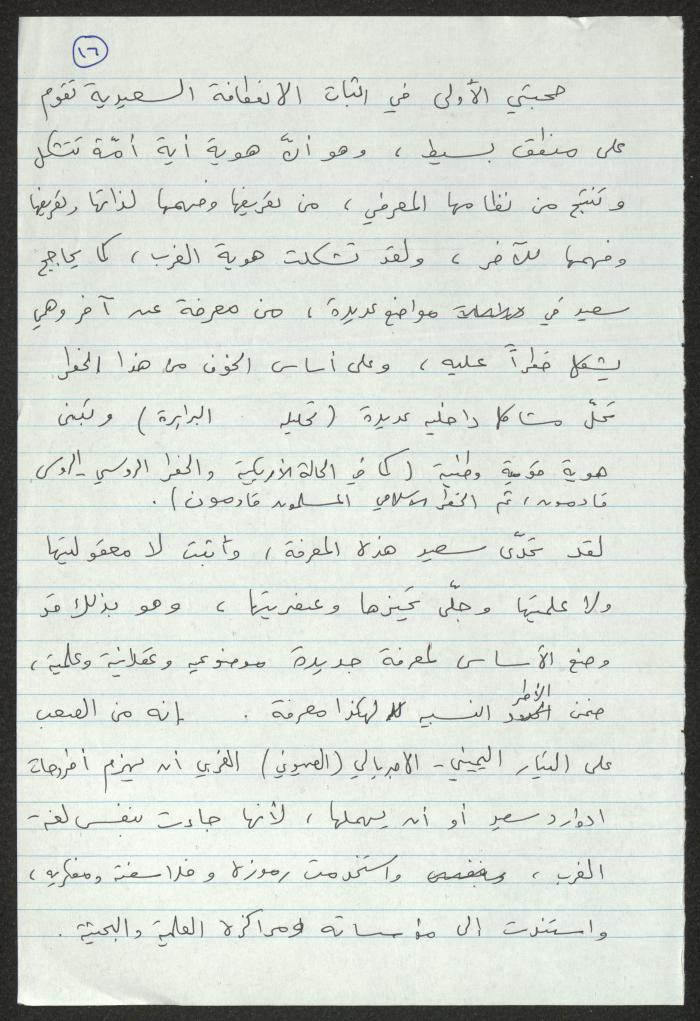 ١٦
حجتي الأولى في اثبات الانعطافة السعيدية تقوم
على منطق بسيط ، وهو أنّ هوية أية أمّة تتشكل
وتنتج من نظامها المعرفي ، من تعريفها وفهمها لذاتها وتعريفها
وفهمها للآخر ، ولقد تشكلت هوية الغرب ، كما يحاجج
سعيد في مواضع عديدة ، من معرفة عن آخر وهي
يشكل خطراً عليه ، وعلى أساس الخوف من هذا الخطر
تحلّ مشاكل داخليه عديدة ( تحليله البرابرة ) وتبنى
هوية قومية وطنية ( كما في الحالة الأمريكية والخطر الروسي - الروس
قادمون ، ثم الخطر الاسلامي المسلمون قادمون ) .
لقد تحدّى سعيد هذه المعرفة ، وأثبت لا معقوليتها
ولا علميتها وجلّى تحيزها وعنصريتها ، وهو بذلك قد
وضع الأساس لمعرفة جديدة موضوعيه وعقلانية وعلمية ،
ضمن الأطر النسبيه لهكذا معرفة . إنه من الصعب
على التيار اليميني - الامبريالي ( الصهيوني ) الغربي أن يهزم أطروحات
ادوارد سعيد أو أن يهملها ، لأنها جاءت بنفس لغة
الغرب ، واستخدمت رموزه وفلاسفته ومفكريه ،
واستندت الى مؤسساته ومراكزه العلمية والبحثية .